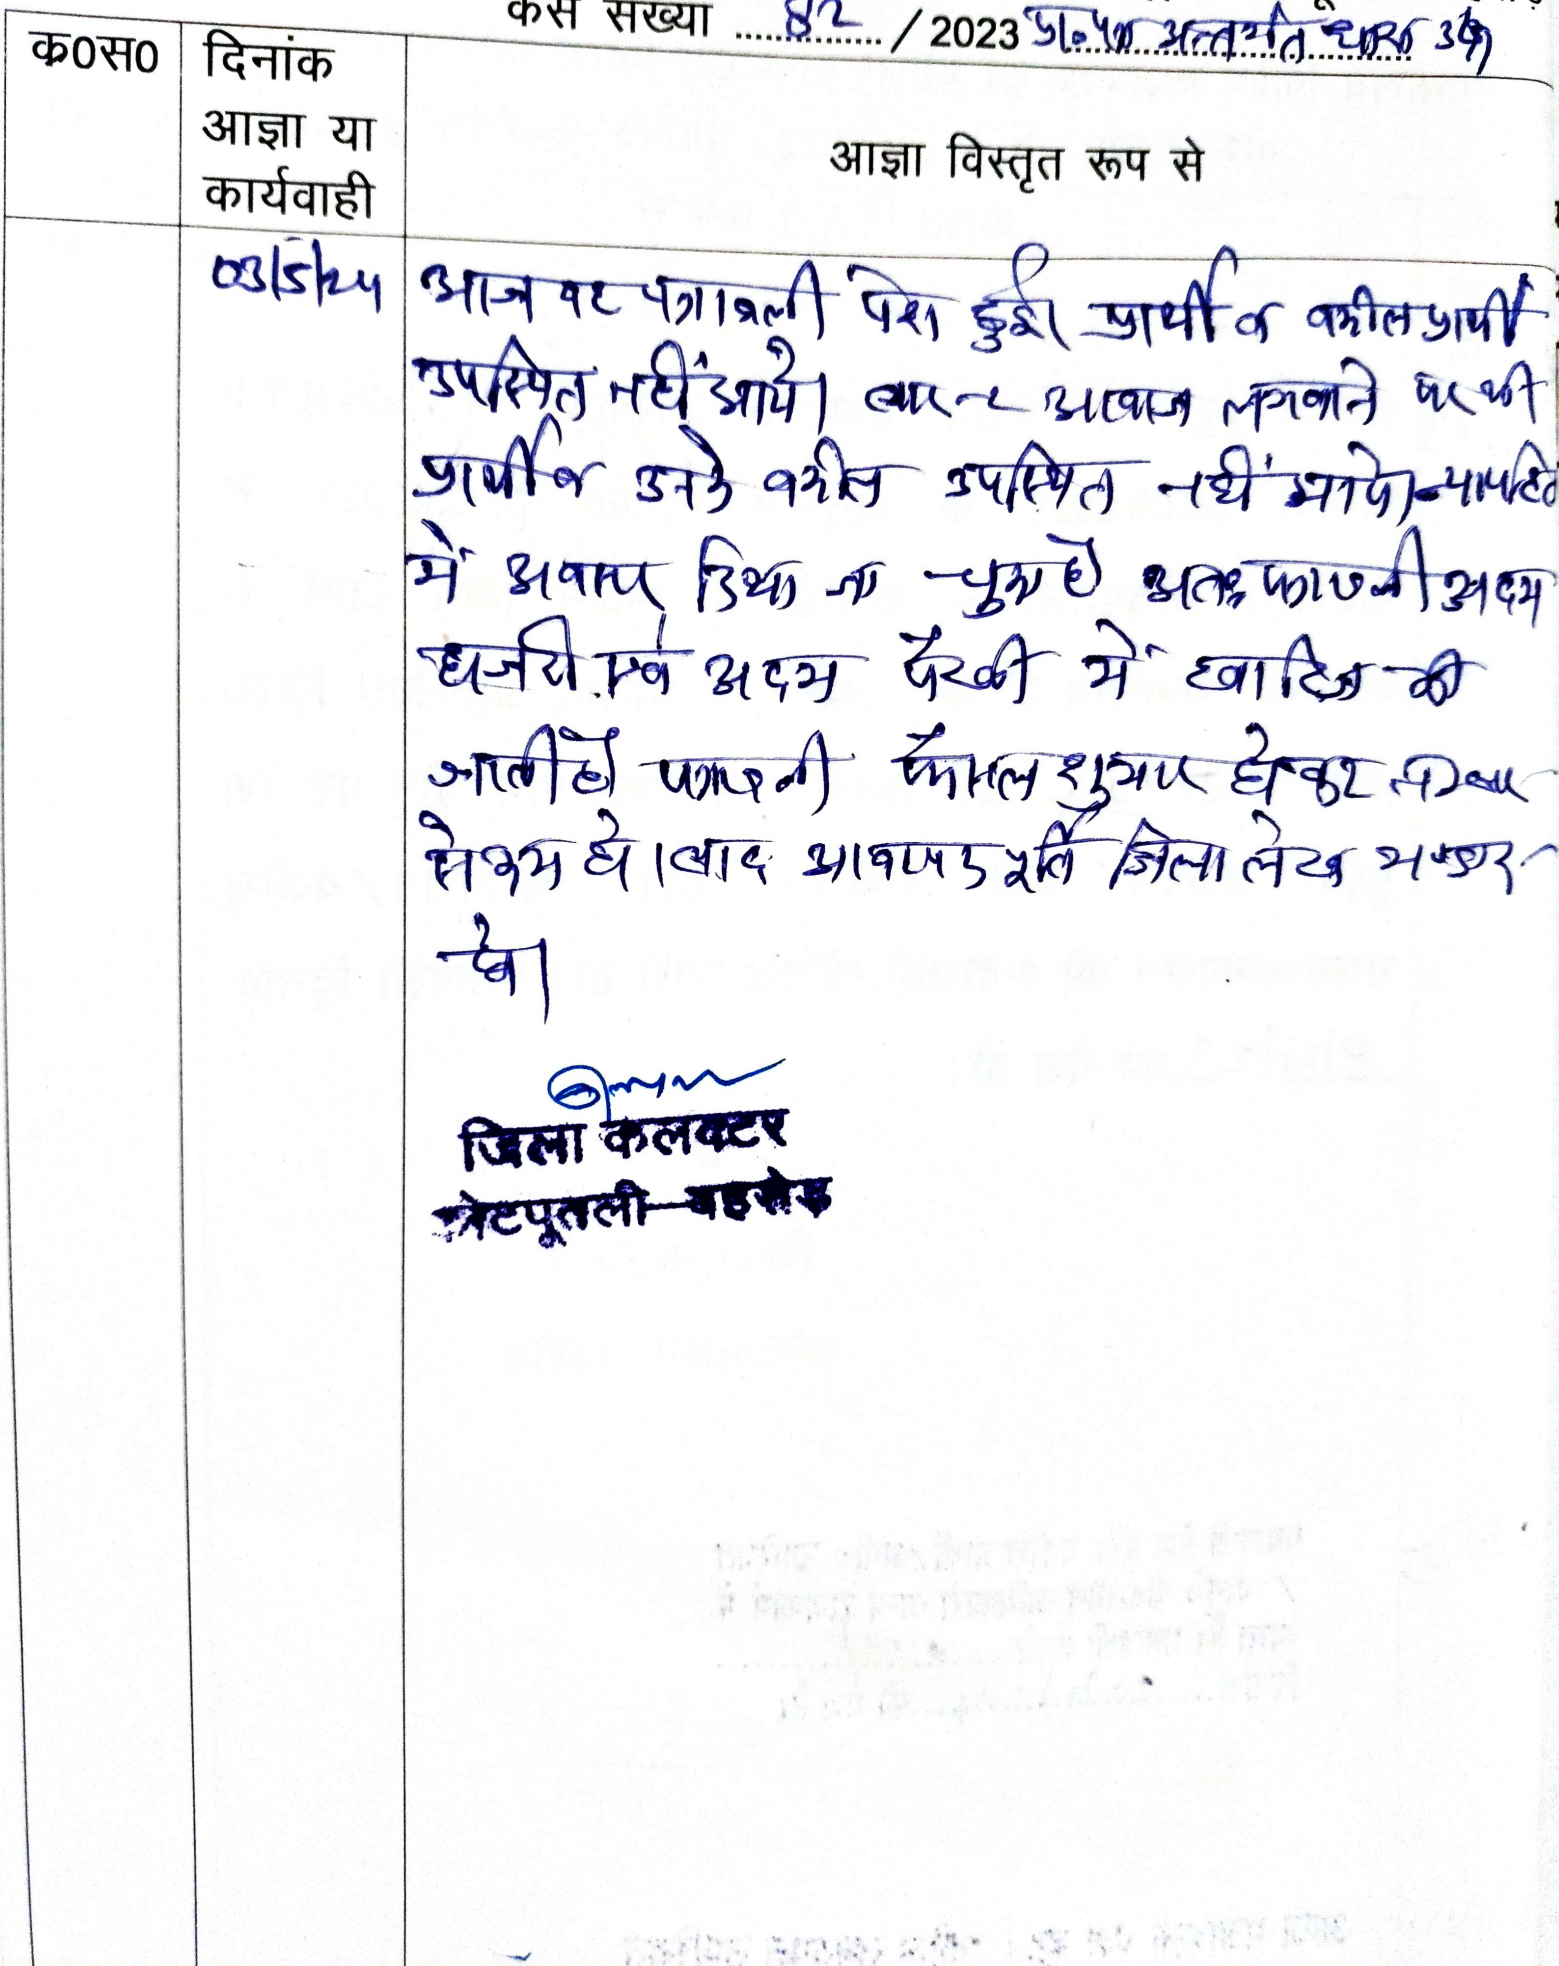 केस संख्या 82 / 2023 प्रा.पत्र अन्तर्गत धारा
क0स0 दिनांक
आज्ञा या
कार्यवाही
आज्ञा विस्तृत रूप से
03/5/24
आज यह पत्रावली पेश हुई। प्रार्थी व वकील प्रार्थी
उपस्थित नहीं आये। बार-2 आवाज लगवाने पर भी
प्रार्थी व उनके वकील उपस्थित नहीं आये।
में अवसर दिया जा चुका है अतः पत्रावली अदम
हाजरी एवं अदम पैरवी में खारिज की
जाती है। पत्रावली फैसल शुमार होकर नम्बर
से कम हो। बाद आवश्यक पूर्ति जिला लेख भण्डार
हो।
जिला कलक्टर
कोटपूतली-बहरोड़